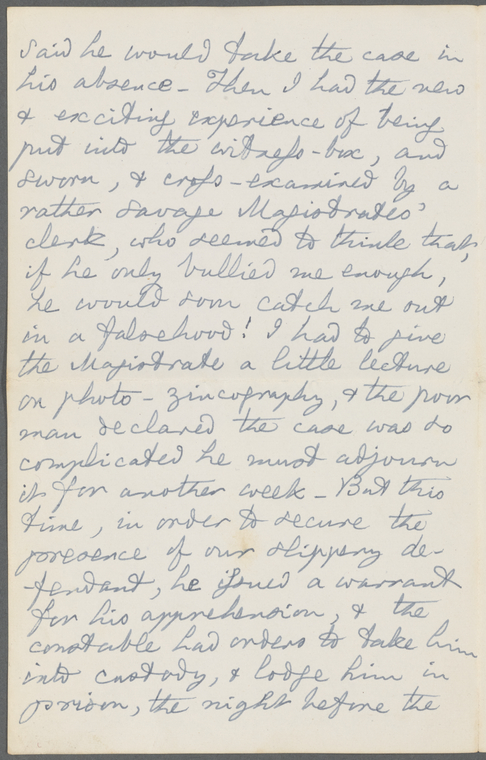 said he would take the case in
his absence - Then I had the new
& exciting experience of being
put into the witness-box, and
sworn, & cross-examined by a
rather savage Magistrates'
clerk, who seemed to think that,
if he only bullied me enough,
he would soon catch me out
in a falsehood! I had to give
the Magistrate a little lecture
on photo-zincography, & the poor
man declared the case was so
complicated he must adjourn
it for another week - But this
time, in order to secure the
presence of our slippery de-
-fendant, he issued a warrant
for his apprehension, & the
constable had orders to take him
into custody, & lodge him in
prison, the night before the